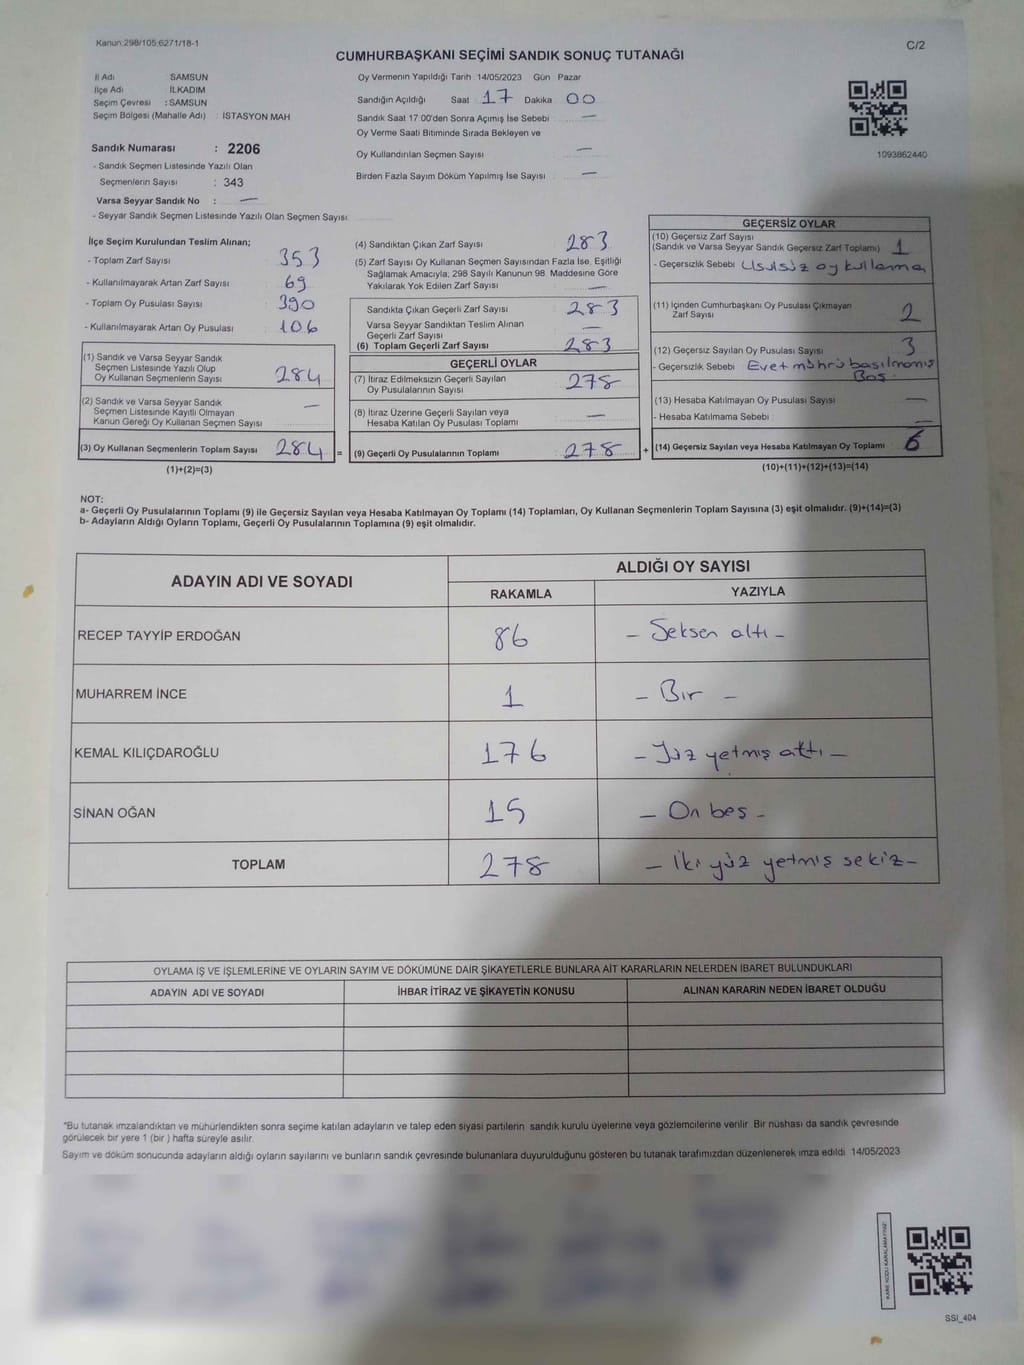 Kanun:298/105;6271/18-1
C/2
CUMHURBAŞKANI SEÇİMİ SANDIK SONUÇ TUTANAĞI
İl Adı SAMSUN
İlçe Adı İLKADIM
Seçim Çevresi : SAMSUN
Seçim Bölgesi (Mahalle Adı) : İSTASYON MAH
Sandık Numarası : 2206
- Sandık Seçmen Listesinde Yazılı Olan
Seçmenlerin Sayısı : 343
Varsa Seyyar Sandık No : —
- Seyyar Sandık Seçmen Listesinde Yazılı Olan Seçmen Sayısı:
Oy Vermenin Yapıldığı Tarih : 14/05/2023 Gün : Pazar
Sandığın Açıldığı Saat : 17 Dakika : 00
Sandık Saat 17:00'den Sonra Açımış İse Sebebi : —
Oy Verme Saati Bitiminde Sırada Bekleyen ve
Oy Kullandırılan Seçmen Sayısı : —
Birden Fazla Sayım Döküm Yapılmış İse Sayısı : —
1093862440
İlçe Seçim Kurulundan Teslim Alınan;
- Toplam Zarf Sayısı : 353
- Kullanılmayarak Artan Zarf Sayısı : 69
- Toplam Oy Pusulası Sayısı : 390
- Kullanılmayarak Artan Oy Pusulası : 106
(1) Sandık ve Varsa Seyyar Sandık
Seçmen Listesinde Yazılı Olup
Oy Kullanan Seçmenlerin Sayısı : 284
(2) Sandık ve Varsa Seyyar Sandık
Seçmen Listesinde Kayıtlı Olmayan
Kanun Gereği Oy Kullanan Seçmen Sayısı : —
(3) Oy Kullanan Seçmenlerin Toplam Sayısı 284 =
(1)+(2)=(3)
(4) Sandıktan Çıkan Zarf Sayısı : 283
(5) Zarf Sayısı Oy Kullanan Seçmen Sayısından Fazla İse, Eşitliği
Sağlamak Amacıyla; 298 Sayılı Kanunun 98. Maddesine Göre
Yakılarak Yok Edilen Zarf Sayısı : —
Sandıkta Çıkan Geçerli Zarf Sayısı : 283
Varsa Seyyar Sandıktan Teslim Alınan
Geçerli Zarf Sayısı : —
(6) Toplam Geçerli Zarf Sayısı : 283
GEÇERLİ OYLAR
(7) İtiraz Edilmeksizin Geçerli Sayılan
Oy Pusulalarının Sayısı : 278
(8) İtiraz Üzerine Geçerli Sayılan veya
Hesaba Katılan Oy Pusulası Toplamı : —
(9) Geçerli Oy Pusulalarının Toplamı : 278 +
GEÇERSİZ OYLAR
(10) Geçersiz Zarf Sayısı
(Sandık ve Varsa Seyyar Sandık Geçersiz Zarf Toplamı) : 1
- Geçersizlik Sebebi : Usulsüz oy kullanma
(11) İçinden Cumhurbaşkanı Oy Pusulası Çıkmayan
Zarf Sayısı : 2
(12) Geçersiz Sayılan Oy Pusulası Sayısı : 3
- Geçersizlik Sebebi : Evet mührü basılmamış
Boş
(13) Hesaba Katılmayan Oy Pusulası Sayısı : —
- Hesaba Katılmama Sebebi : —
(14) Geçersiz Sayılan veya Hesaba Katılmayan Oy Toplamı : 6
(10)+(11)+(12)+(13)=(14)
NOT:
a- Geçerli Oy Pusulalarının Toplamı (9) ile Geçersiz Sayılan veya Hesaba Katılmayan Oy Toplamı (14) Toplamları, Oy Kullanan Seçmenlerin Toplam Sayısına (3) eşit olmalıdır. (9)+(14)=(3)
b- Adayların Aldığı Oyların Toplamı, Geçerli Oy Pusulalarının Toplamına (9) eşit olmalıdır.
ADAYIN ADI VE SOYADI
ALDIĞI OY SAYISI
RAKAMLA YAZIYLA
RECEP TAYYİP ERDOĞAN 86 – Seksen altı –
MUHARREM İNCE 1 – Bir –
KEMAL KILIÇDAROĞLU 176 – Yüz yetmiş altı –
SİNAN OĞAN 15 – On beş –
TOPLAM 278 – İki yüz yetmiş sekiz –
OYLAMA İŞ VE İŞLEMLERİNE VE OYLARIN SAYIM VE DÖKÜMÜNE DAİR ŞİKAYETLERLE BUNLARA AİT KARARLARIN NELERDEN İBARET BULUNDUKLARI
ADAYIN ADI VE SOYADI İHBAR İTİRAZ VE ŞİKAYETİN KONUSU ALINAN KARARIN NEDEN İBARET OLDUĞU
"Bu tutanak imzalandıktan ve mühürlendikten sonra seçime katılan adayların ve talep eden siyasi partilerin sandık kurulu üyelerine veya gözlemcilerine verilir. Bir nüshası da sandık çevresinde
görülecek bir yere 1 (bir ) hafta süreyle asılır.
Sayım ve döküm sonucunda adayların aldığı oyların sayılarını ve bunların sandık çevresinde bulunanlara duyurulduğunu gösteren bu tutanak tarafımızdan düzenlenerek imza edildi. 14/05/2023
KARE KODU KARALAMAYINIZ
SSİ_404